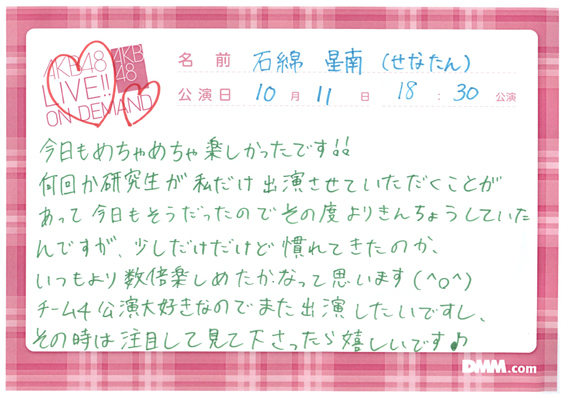 AKB48
LIVE!!
ON DEMAND
AKB
48
名前 石綿 星南 (せなたん)
公演日 10月 11日 18:30 公演
今日もめちゃめちゃ楽しかったです!!
何回か研究生が私だけ出演させていただくことが
あって今日もそうだったのでその度よりきんちょうしていた
んですが、少しだけだけど慣れてきたのか、
いつもより数倍楽しめたかなって思います(^o^)
チーム4公演大好きなのでまた出演したいですし、
その時は注目して見て下さったら嬉しいです♪
DMM.com